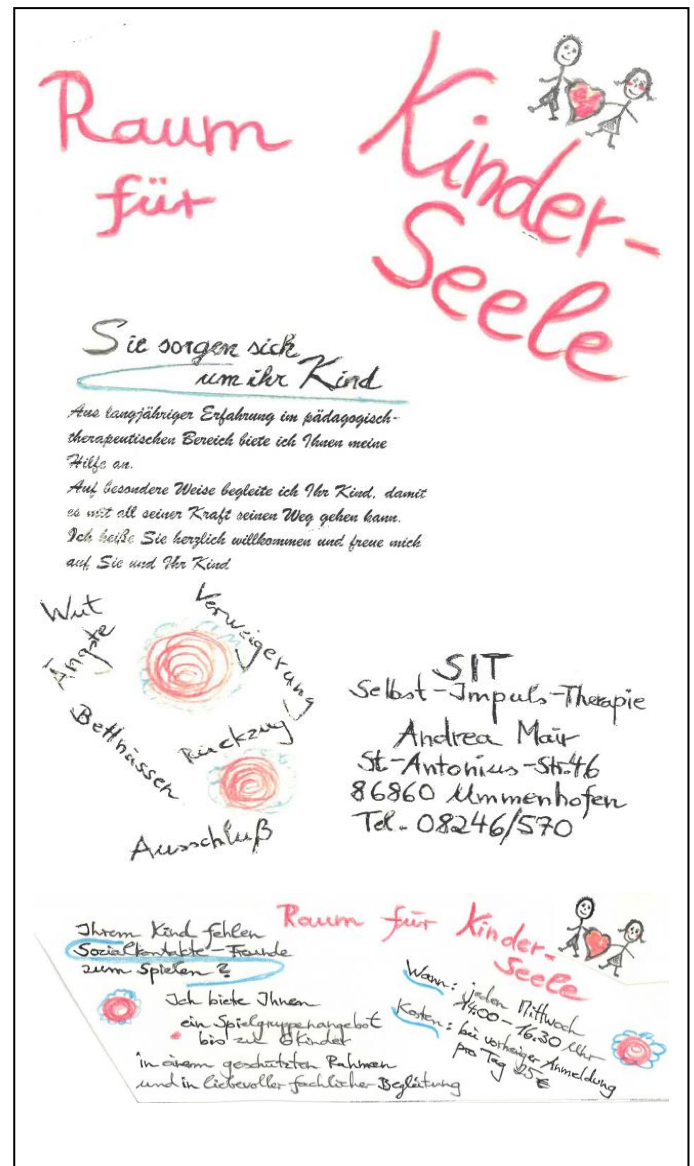 Raum
für
Kinder-
Seele
Sie sorgen sich
um ihr Kind
Aus langjähriger Erfahrung im pädagogisch-
therapeutischen Bereich biete ich Ihnen meine
Hilfe an.
Auf besondere Weise begleite ich Ihr Kind, damit
es mit all seiner Kraft seinen Weg gehen kann.
Ich heiße Sie herzlich willkommen und freue mich
auf Sie und Ihr Kind
Wut
Ängste
Verweigerung
Bettnässen
Rückzug
Ausschluß
SIT
Selbst-Impuls-Therapie
Andrea Mair
St-Antonius-Str.46
86860 Ummenhofen
Tel. 08246/570
Raum für Kinder-
Seele
Ihrem Kind fehlen
Sozialkontakte-Freunde
zum Spielen?
Ich biete Ihnen
ein Spielgruppenangebot
bis zu Kinder
in einem geschützten Rahmen
und in liebevoller fachlicher Begleitung
Wann: jeden Mittwoch
14:00 - 16.30 Uhr
Kosten: bei vorheriger Anmeldung
pro Tag 25 €